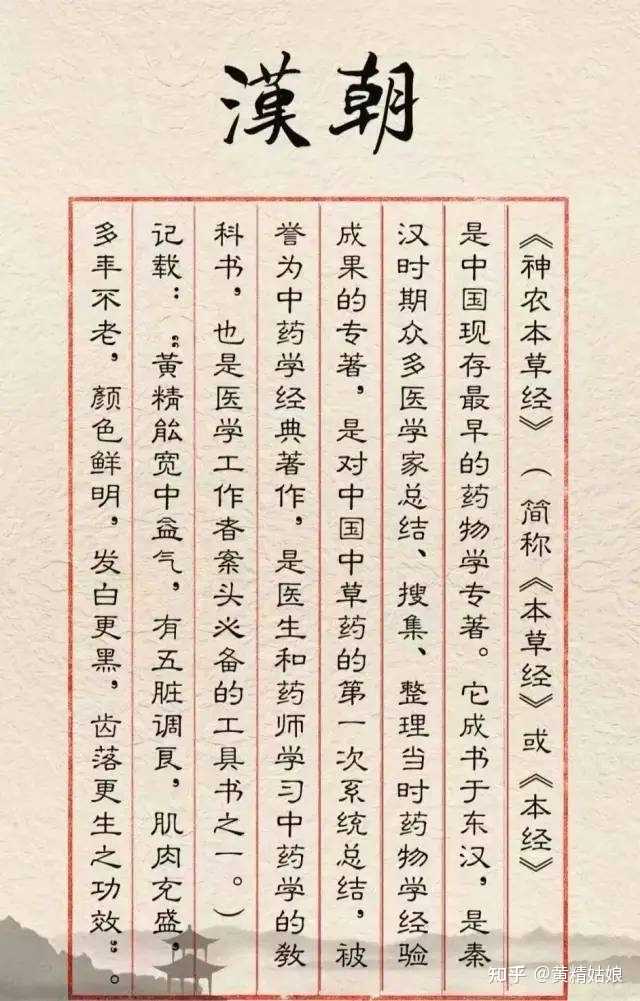 漢朝
《神农本草经》（简称《本草经》或《本经》
是中国现存最早的药物学专著。它成书于东汉，是秦
汉时期众多医学家总结、搜集、整理当时药物学经验
成果的专著，是对中国中草药的第一次系统总结，被
誉为中药学经典著作，是医生和药师学习中药学的教
科书，也是医学工作者案头必备的工具书之一。）
记载：“黄精能宽中益气，有五脏调良，肌肉充盛，
多年不老，颜色鲜明，发白更黑，齿落更生之功效”。
知乎 @黄精姑娘